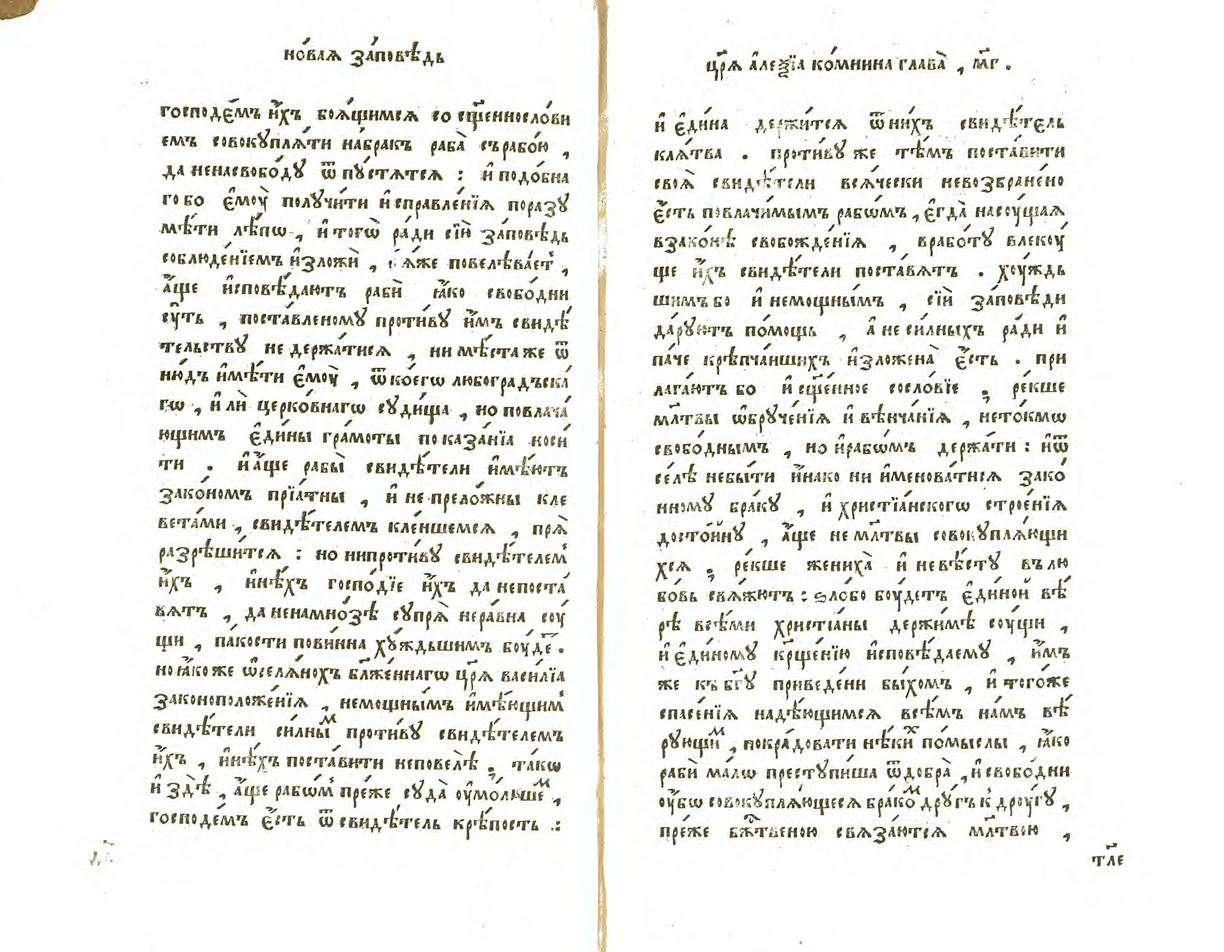 но́вая за́повѣдь
господе́мъ и҆́хъ боѧ́щимсѧ со сщ҃еннослови
емъ совокꙋплѧ́ти набракъ раба̀ съ рабо́ю ,
да ненасвобо́дꙋ ѿ пꙋ́стѧтсѧ : и҆ подо́бна
го бо є҆моꙋ̀ полꙋчи́ти и҆справле́нїѧ поразꙋ
мѣ́ти лѣ́пѡ , и҆ тогѡ̀ ра́ди сїю̀ за́повѣдь
соблюде́нїемъ и҆зложѝ , ꙗ҆́же повелѣва́етъ ,
а҆́ще и҆сповѣ́даютъ рабѝ ꙗ҆́ко свобо́дни
сꙋ́ть , поста́вленомꙋ проти́вꙋ и҆̀мъ свидѣ́
тельствꙋ не держа́тисѧ , ни мѣ́ста же ѿ
ню́дъ и҆мѣ́ти є҆моꙋ̀ , ѿ ко́егѡ любогра́дьска
гѡ , и҆лѝ церко́внагѡ сꙋди́ща , но повлача́
ющимъ є҆ди́ны гра́моты показа́нїа носи́
ти . и҆ а҆́ще рабы̀ свидѣ́тели и҆мѣ́ютъ
зако́номъ прїа́тны , и҆ не прело́жны кле
вета́ми , свидѣ́телемъ кле́ншемсѧ , прѧ̀
разрѣши́тсѧ : но нипроти́вꙋ свидѣ́телем
и҆́хъ , и҆нѣ́хъ госпо́дїе и҆́хъ да непоста́
вѧтъ , да ненамно́зѣ сꙋпрѧ̀ нера́вна сꙋ́
щи , па́кости пови́нна хꙋ́ждьшимъ бꙋ́де .
но ꙗ҆́коже ѡ҆селѧ́нохъ бл҃же́ннагѡ цр҃ѧ̀ васи́лїа
законоположе́нїѧ , немощны́мъ и҆мѣ́ющим
свидѣ́тели си́лны́м проти́вꙋ свидѣ́телемъ
и҆́хъ , и҆нѣ́хъ поста́вити неповелѣ̀ , та́кѡ
и҆ здѣ̀ , а҆́ще рабѡ́м пре́же сꙋда̀ ᲂу҆мо́лкше́м ,
господе́мъ є҆́сть ѿ свидѣ́тель крѣ́пость .:
цр҃ѧ̀ а҆ле́ѯїа комни́на глава̀ , м҃г .
и҆ є҆ди́на держи́тсѧ ѿ ни́хъ свидѣ́тель
клѧ́тва . проти́вꙋ же тѣ́мъ поста́вити
своѧ̀ свидѣ́тели всѧ́чески невозбране́но
є҆́сть повлачи́мымъ рабѡ́мъ , є҆гда̀ насꙋ́щаѧ
взако́нѣ свобожде́нїѧ , врабо́тꙋ влекꙋ́
ще и҆́хъ свидѣ́тели поста́вѧтъ . хꙋ́ждь
шимъ бо и҆ немощны́мъ , сїѝ за́повѣди
да́рꙋютъ по́мощь , а҆ неси́лныхъ ра́ди и҆
па́че крѣпча́ишихъ и҆зложена̀ є҆́сть . при
лага́ютъ бо и҆ сщ҃е́нное сосло́вїе , ре́кше
мл҃твы ѡ҆брꙋче́нїѧ и҆ вѣнча́нїѧ , нето́кмѡ
свобо́днымъ , но и҆ рабѡ́мъ держа́ти : и҆ ѿ
се́лѣ небы́ти и҆́нако ни и҆менова́тисѧ зако́
нномꙋ бра́кꙋ , и҆ христїа́нскогѡ строе́нїѧ
досто́йнꙋ , а҆́ще не мл҃твы совокꙋплѧ́ющи
хсѧ , ре́кше жениха̀ и҆ невѣ́стꙋ въ лю
бо́вь свѧ́жꙋтъ : ѕло бо бꙋ́детъ є҆ди́ной вѣ́
рѣ всѣ́ми христїа́ны держи́мѣ сꙋ́щи ,
и҆ є҆ди́номꙋ кр҃ще́нїю и҆сповѣ́даемꙋ , и҆́мъ
же къ бг҃ꙋ приведе́ни бы́хомъ , и҆ того́же
спасе́нїѧ надѣ́ющимсѧ всѣ́мъ на́мъ вѣ́
рꙋющи́м , покра́довати нѣ́ки́х по́мыслы , ꙗ҆́ко
рабѝ ма́лѡ престꙋпи́ша ѿ добра̀ , и҆ свобо́дни
ᲂу҆́бѡ совокꙋплѧ́ющесѧ бра́ко́м дрꙋ́гъ к дрꙋ́гꙋ ,
пре́же бж҃твеною свѧза́ютсѧ мл҃твою ,
тлѣ